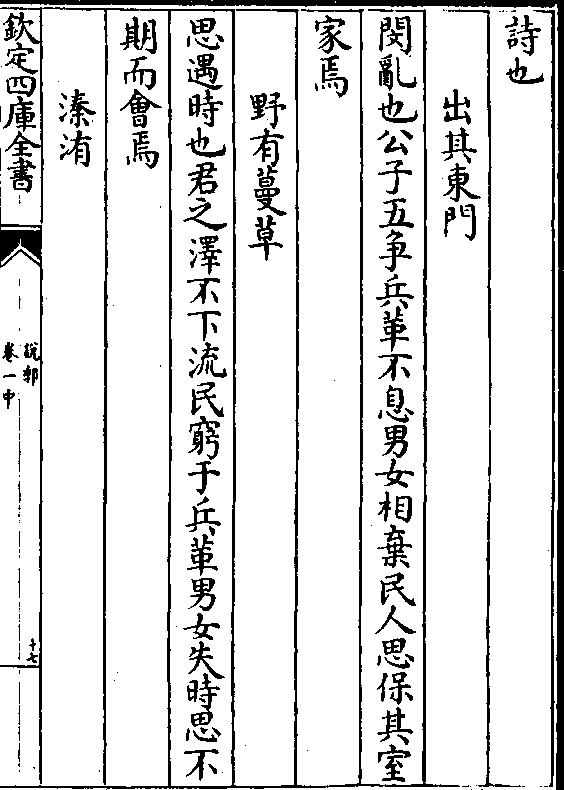 詩也
出其東門
閔亂也公子五争兵革不息男女相棄民人思保其室
家焉
野有蔓草
思遇時也君之澤不下流民窮于兵革男女失時思不
期而會焉
溱洧
欽定四庫全書
說郛
卷一中
十七